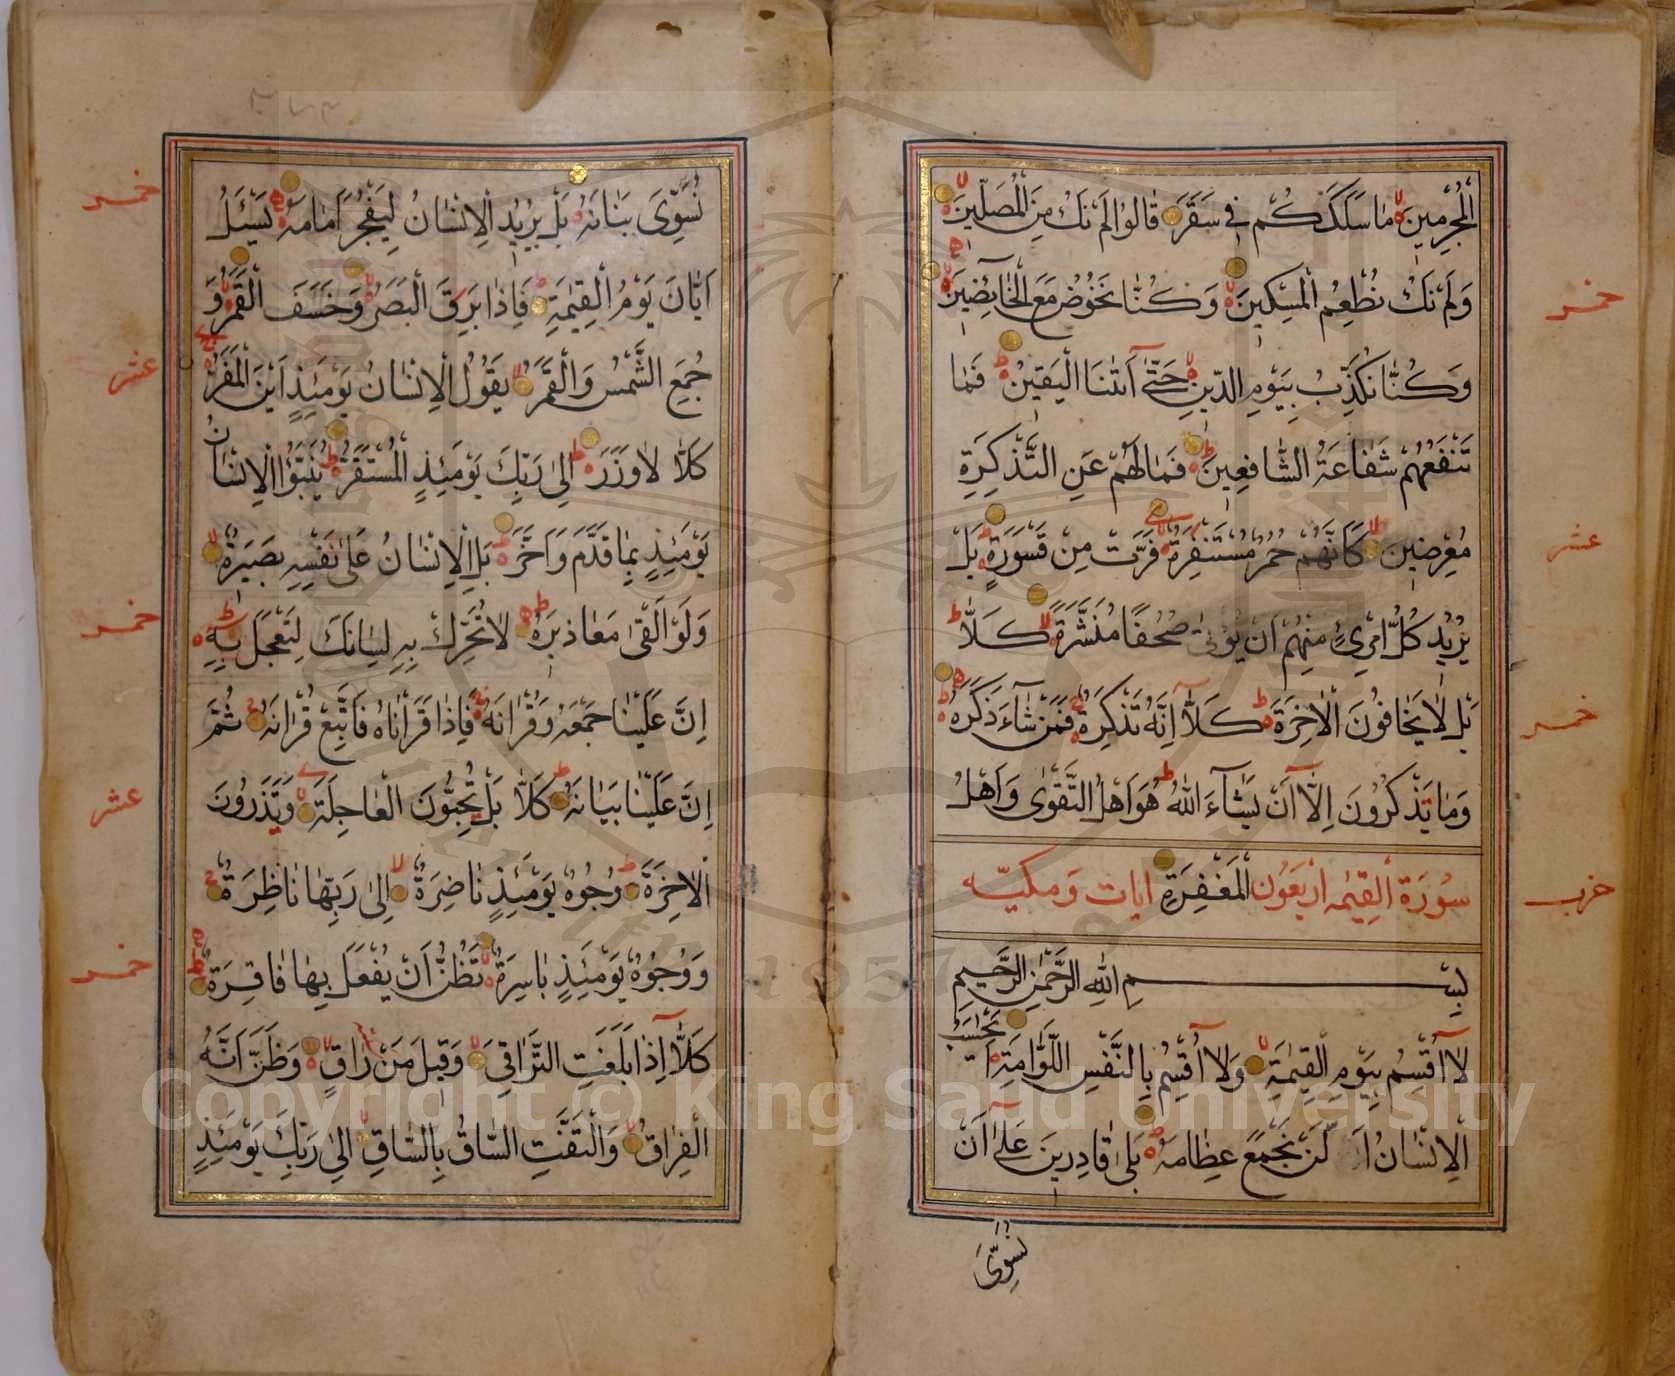 الْمُجْرِمِينَ مَا سَلَكَكُمْ فِي سَقَرَ قَالُوا لَمْ نَكُ مِنَ الْمُصَلِّينَ
وَلَمْ نَكُ نُطْعِمُ الْمِسْكِينَ وَكُنَّا نَخُوضُ مَعَ الْخَائِضِينَ
خمس
وَكُنَّا نُكَذِّبُ بِيَوْمِ الدِّينِ حَتَّى أَتَنَا الْيَقِينُ فَمَا
تَنْفَعُهُمْ شَفَاعَةُ الشَّافِعِينَ فَمَا لَهُمْ عَنِ التَّذْكِرَةِ
مُعْرِضِينَ كَأَنَّهُمْ حُمُرٌ مُسْتَنْفِرَةٌ فَرَّتْ مِنْ قَسْوَرَةٍ بَلْ
عشر
يُرِيدُ كُلُّ امْرِئٍ مِنْهُمْ أَنْ يُؤْتَى صُحُفًا مُنَشَّرَةً كَلَّا
بَلْ لَا يَخَافُونَ الْآخِرَةَ كَلَّا إِنَّهُ تَذْكِرَةٌ فَمَنْ شَاءَ ذَكَرَهُ
خمس
وَمَا يَذْكُرُونَ إِلَّا أَنْ يَشَاءَ اللَّهُ هُوَ أَهْلُ التَّقْوَى وَأَهْلُ
الْمَغْفِرَةِ
سُورَةُ الْقِيٰمَةِ أَرْبَعُونَ آيَات وَمَكِّيَّة
حزب
بِسْمِ اللَّهِ الرَّحْمٰنِ الرَّحِيمِ
لَا أُقْسِمُ بِيَوْمِ الْقِيٰمَةِ وَلَا أُقْسِمُ بِالنَّفْسِ اللَّوَّامَةِ أَيَحْسَبُ
الْإِنْسَانُ أَلَّنْ نَجْمَعَ عِظَامَهُ بَلَى قَادِرِينَ عَلَى أَنْ
نُسَوِّيَ
نُسَوِّيَ بَنَانَهُ بَلْ يُرِيدُ الْإِنْسَانُ لِيَفْجُرَ أَمَامَهُ يَسْئَلُ
خمس
أَيَّانَ يَوْمُ الْقِيٰمَةِ فَإِذَا بَرِقَ الْبَصَرُ وَخَسَفَ الْقَمَرُ وَ
جُمِعَ الشَّمْسُ وَالْقَمَرُ يَقُولُ الْإِنْسَانُ يَوْمَئِذٍ أَيْنَ الْمَفَرُّ
عشر
كَلَّا لَا وَزَرَ إِلَى رَبِّكَ يَوْمَئِذٍ الْمُسْتَقَرُّ يُنَبَّؤُا الْإِنْسَانُ
يَوْمَئِذٍ بِمَا قَدَّمَ وَأَخَّرَ بَلِ الْإِنْسَانُ عَلَى نَفْسِهِ بَصِيرَةٌ
وَلَوْ أَلْقَى مَعَاذِيرَهُ لَا تُحَرِّكْ بِهِ لِسَانَكَ لِتَعْجَلَ بِهِ
خمس
إِنَّ عَلَيْنَا جَمْعَهُ وَقُرْآنَهُ فَإِذَا قَرَأْنَاهُ فَاتَّبِعْ قُرْآنَهُ ثُمَّ
إِنَّ عَلَيْنَا بَيَانَهُ كَلَّا بَلْ تُحِبُّونَ الْعَاجِلَةَ وَتَذَرُونَ
عشر
الْآخِرَةَ وُجُوهٌ يَوْمَئِذٍ نَاضِرَةٌ إِلَى رَبِّهَا نَاظِرَةٌ
وَوُجُوهٌ يَوْمَئِذٍ بَاسِرَةٌ تَظُنُّ أَنْ يُفْعَلَ بِهَا فَاقِرَةٌ
خمس
كَلَّا إِذَا بَلَغَتِ التَّرَاقِيَ وَقِيلَ مَنْ رَاقٍ وَظَنَّ أَنَّهُ
الْفِرَاقُ وَالْتَفَّتِ السَّاقُ بِالسَّاقِ إِلَى رَبِّكَ يَوْمَئِذٍ
Copyright © King Saud University
1957